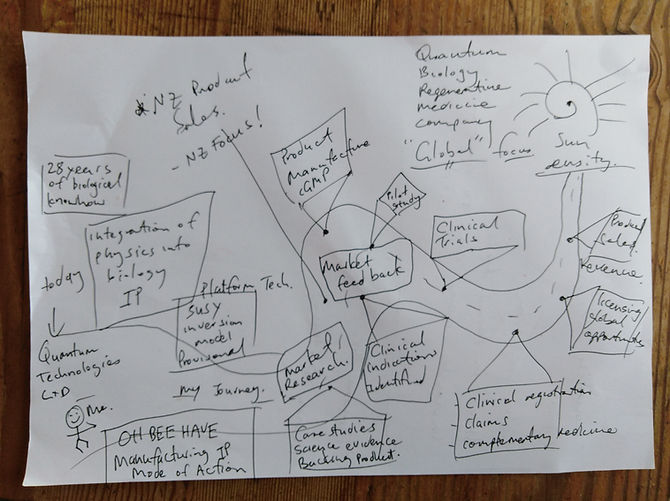 * NZ Product
Sales.
- NZ Focus!
Quantum
Biology
Regenerative
medicine
company
"Global" focus
Sun
ensity.
28 years
of biological
knowhow
Product
Manufacture
cGMP
Pilot
study
Clinical
Trials
integration of
physics into
biology
IP
today
Platform Tech.
SUSY
inversion
model
Provisional
Market
feedback
Product
Sales.
Revenue.
licensing/
global
opportunities
Quantum
Technologies
LTD
Me.
my Journey.
Market/
Research.
Clinical
indications
Identified
OH BEE HAVE
Manufacturing IP
Mode of Action
Case studies
Science evidence
Backing Product.
- Clinical registration
- Claims
- complementary medicine